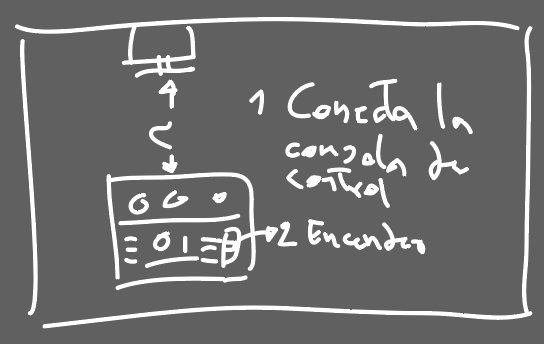 1 Conecta la
consola de
control
01
2 Encender